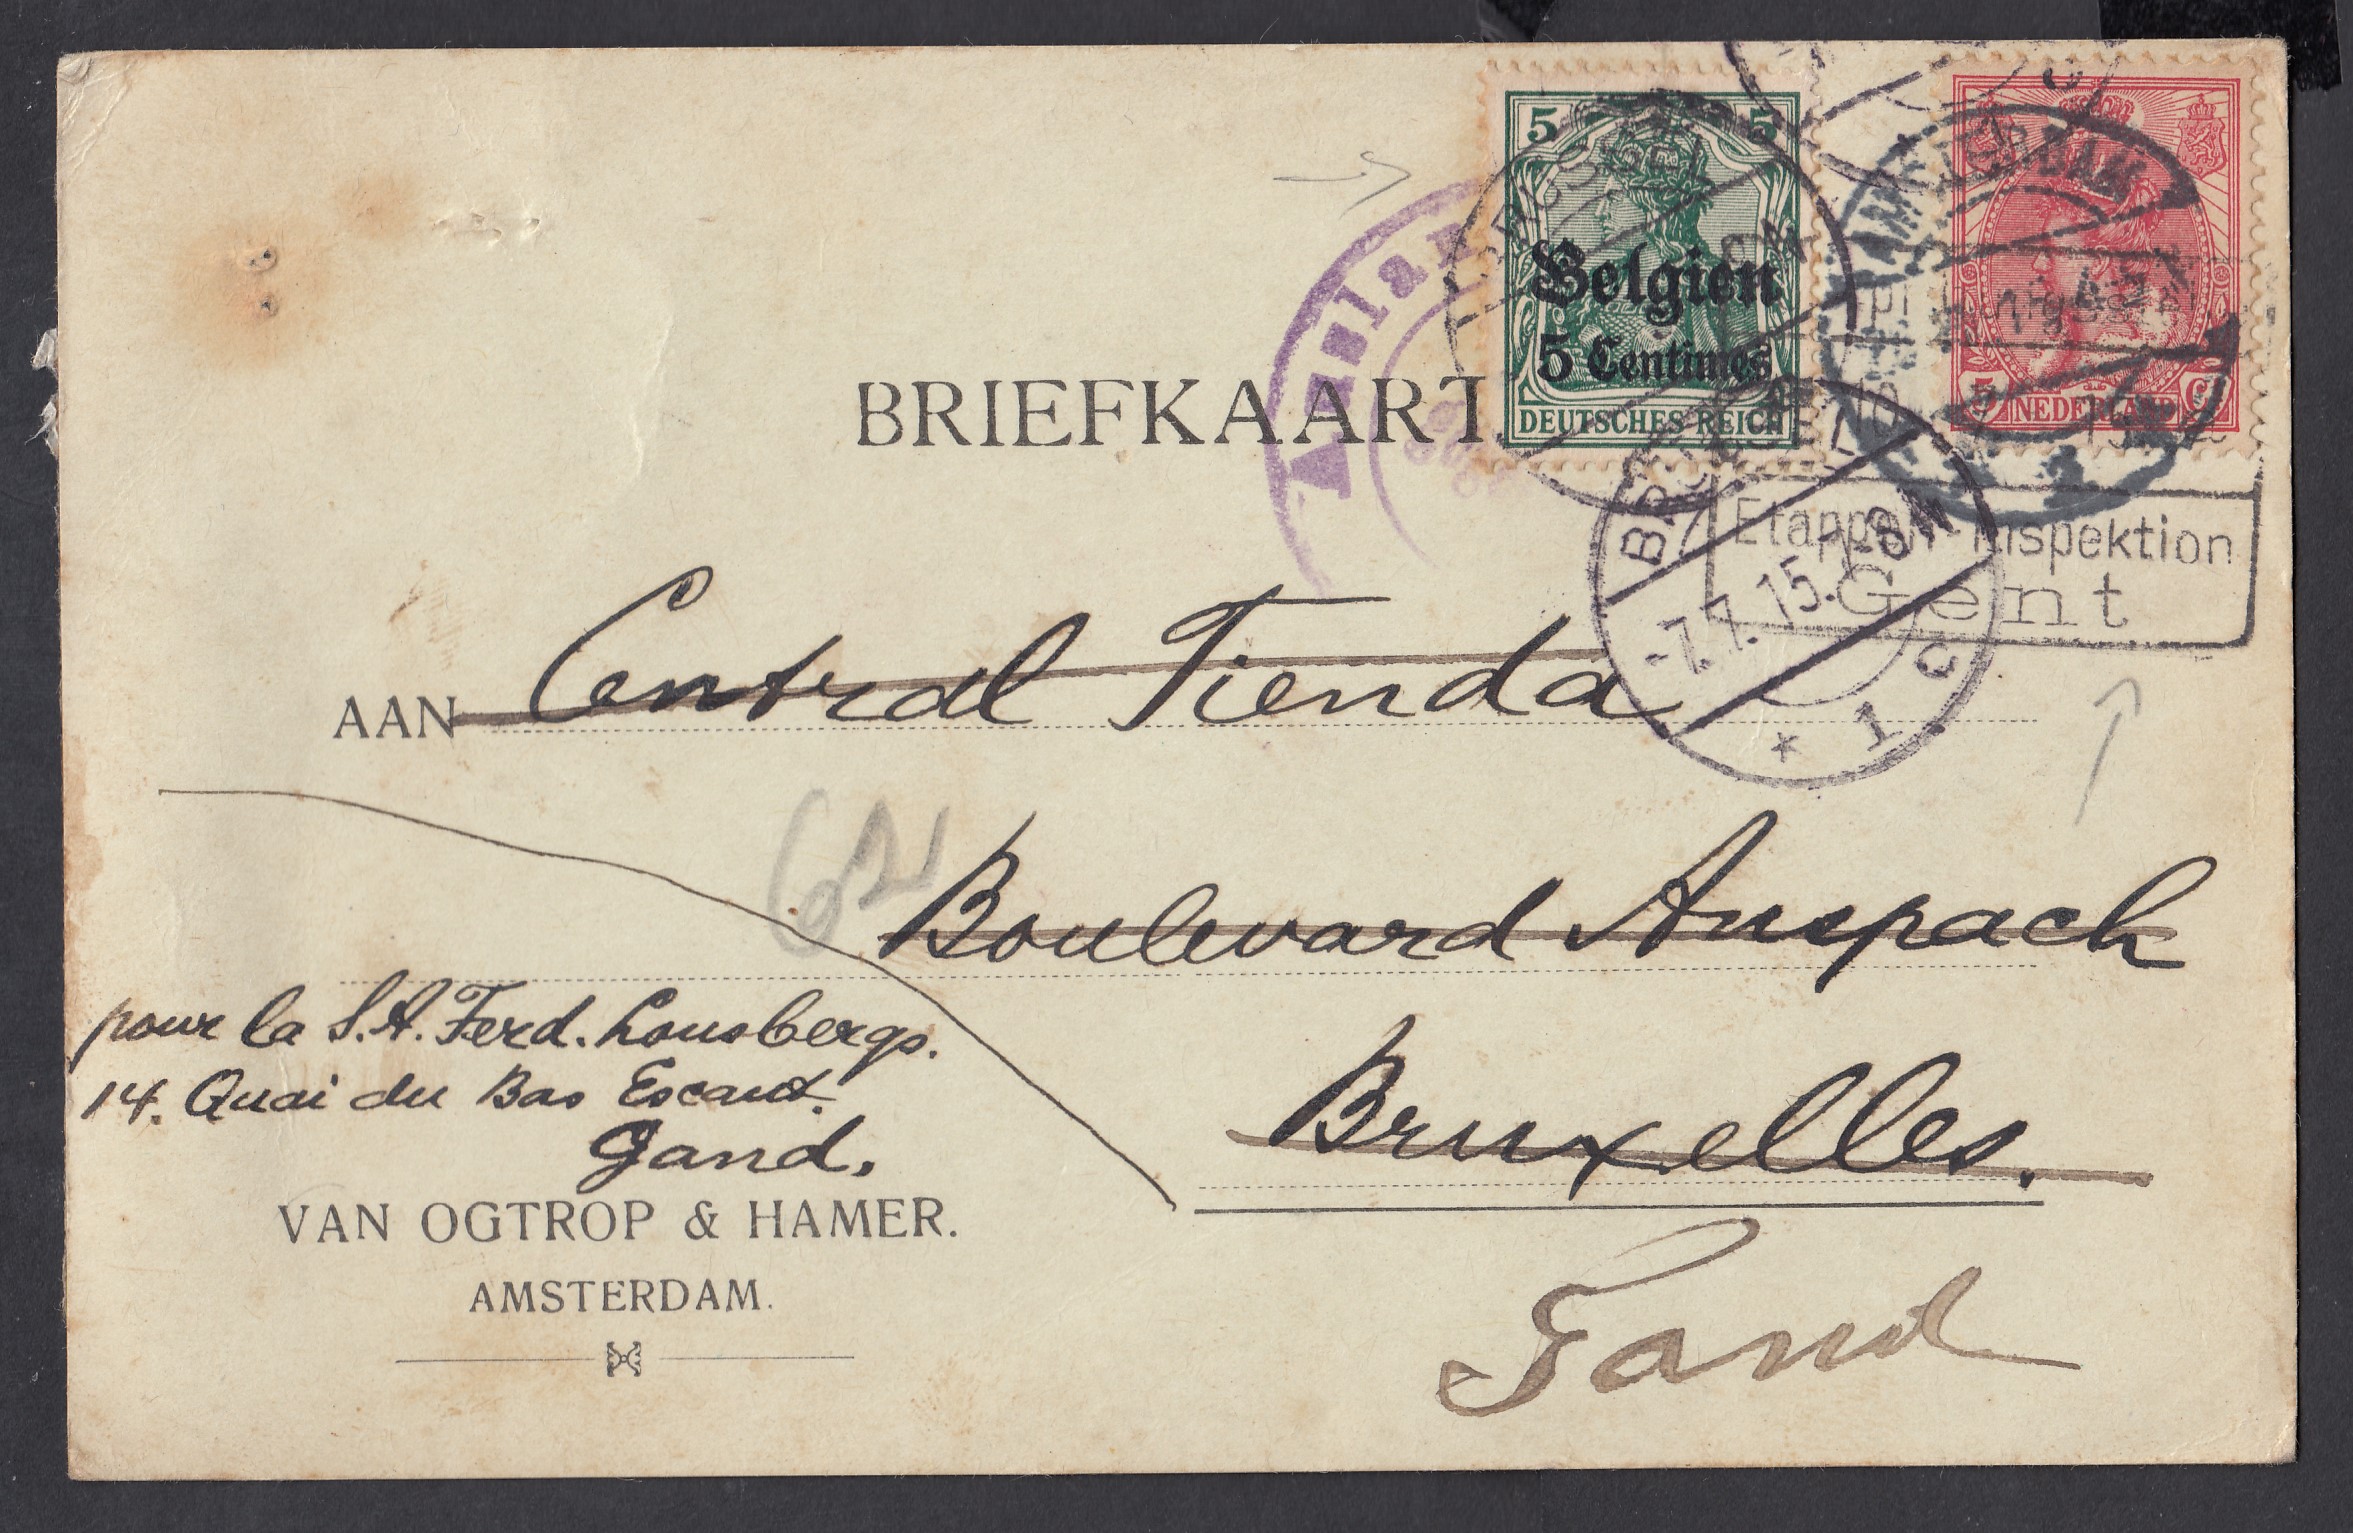 5 5
Belgien
5 Centimes
DEUTSCHES REICH
AMSTERDAM
5
NEDERLAND
BRIEFKAART
Etappen-Inspektion
Gent
7.7.15.
* 1 c
AAN Central Tienda
62
Boulevard Anspach
Bruxelles.
pour la S.A. Ferd. Lousbergs.
14. Quai du Bas Escaut.
Gand.
Gand
VAN OGTROP & HAMER.
AMSTERDAM.